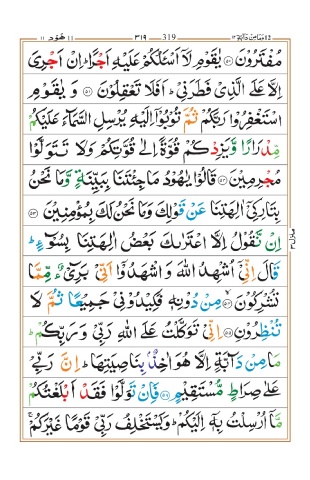 ١١ هُوْد ١١ ٣١٩ 319 وَمَا مِنْ دَآبَّةٍ ١٢
مُفْتَرُوْنَ ۝٥٠ يٰقَوْمِ لَآ اَسْـَٔلُكُمْ عَلَيْهِ اَجْرًا ؕ اِنْ اَجْرِيَ
اِلَّا عَلَي الَّذِيْ فَطَرَنِيْ ؕ اَفَلَا تَعْقِلُوْنَ ۝٥١ وَ يٰقَوْمِ
اسْتَغْفِرُوْا رَبَّكُمْ ثُمَّ تُوْبُوْٓا اِلَيْهِ يُرْسِلِ السَّمَآءَ عَلَيْكُمْ
مِّدْرَارًا وَّيَزِدْكُمْ قُوَّةً اِلٰي قُوَّتِكُمْ وَلَا تَتَوَلَّوْا
مُجْرِمِيْنَ ۝٥٢ قَالُوْا يٰهُوْدُ مَا جِئْتَنَا بِبَيِّنَةٍ وَّمَا نَحْنُ
بِتَارِكِيْٓ اٰلِهَتِنَا عَنْ قَوْلِكَ وَمَا نَحْنُ لَكَ بِمُؤْمِنِيْنَ ۝٥٣
اِنْ نَّقُوْلُ اِلَّا اعْتَرٰىكَ بَعْضُ اٰلِهَتِنَا بِسُوْٓءٍ ؕ
قَالَ اِنِّيْٓ اُشْهِدُ اللّٰهَ وَ اشْهَدُوْٓا اَنِّيْ بَرِيْٓءٌ مِّمَّا
تُشْرِكُوْنَ ۝٥٤ مِنْ دُوْنِهٖ فَكِيْدُوْنِيْ جَمِيْعًا ثُمَّ لَا
تُنْظِرُوْنِ ۝٥٥ اِنِّيْ تَوَكَّلْتُ عَلَي اللّٰهِ رَبِّيْ وَ رَبِّكُمْ ؕ
مَا مِنْ دَآبَّةٍ اِلَّا هُوَ اٰخِذٌۢ بِنَاصِيَتِهَا ؕ اِنَّ رَبِّيْ
عَلٰي صِرَاطٍ مُّسْتَقِيْمٍ ۝٥٦ فَاِنْ تَوَلَّوْا فَقَدْ اَبْلَغْتُكُمْ
مَّآ اُرْسِلْتُ بِهٖٓ اِلَيْكُمْ ؕ وَيَسْتَخْلِفُ رَبِّيْ قَوْمًا غَيْرَكُمْ ۚ
منزل ٣